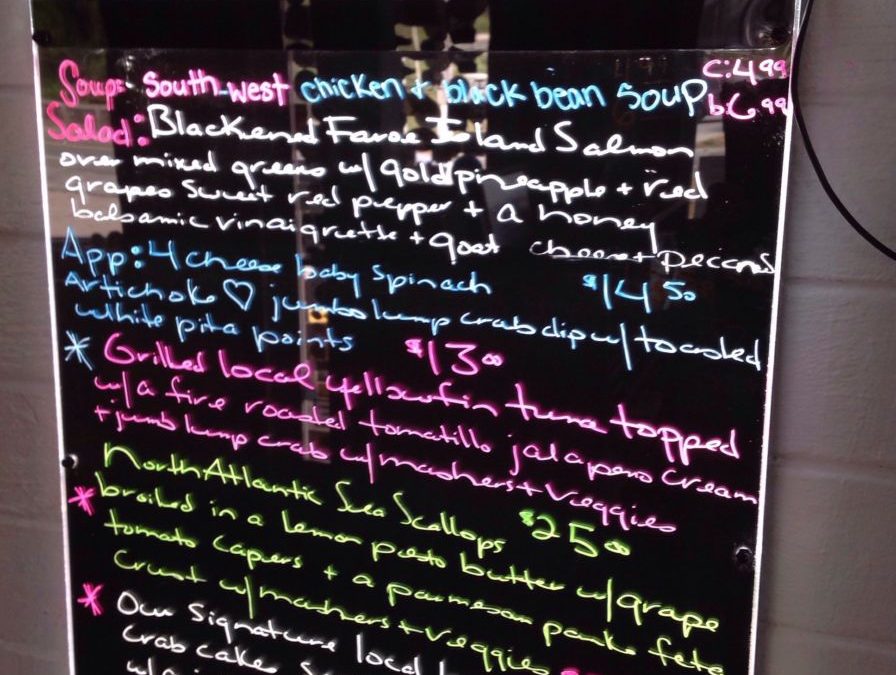 Soup: South-west chicken + black bean Soup c:4.99
b:6.99
Salad: Blackened Faroe Island Salmon
over mixed greens w/ gold pineapple + red
grapes sweet red pepper + a honey
balsamic vinaigrette + goat cheese + pecans
$14.50
App: 4 cheese baby spinach
Artichoke ♡ jumbo lump crab dip w/ toasted
white pita points $13.00
* Grilled local yellowfin tuna topped
w/ a fire roasted tomatillo jalapeno cream
+ jumb lump crab w/ mashers + veggies
$25.00
* North Atlantic Sea Scallops
broiled in a lemon pesto butter w/ grape
tomato capers + a parmesan panko feta
crust w/ mashers + veggies
* Our Signature local
crab cakes